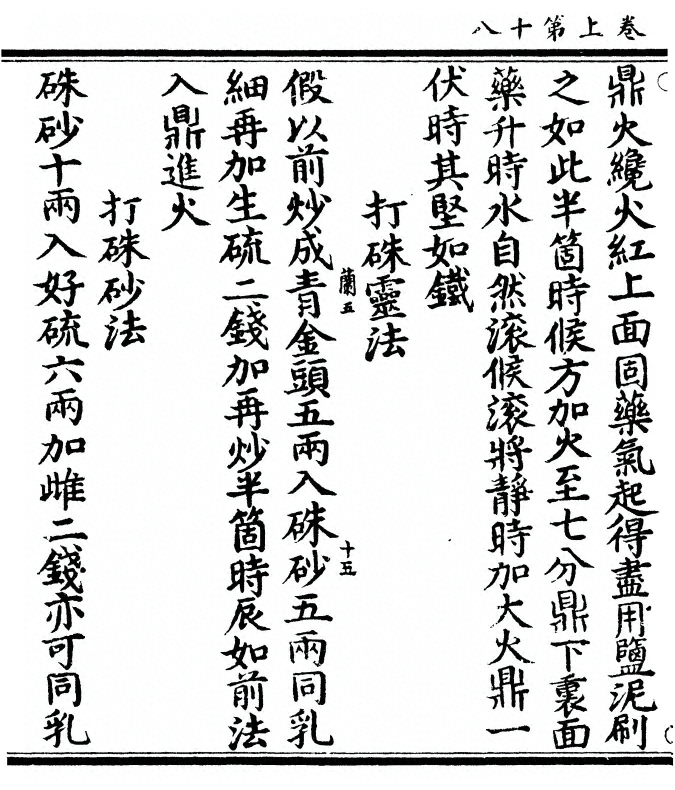 卷上第十八
鼎火纔火紅上面固藥氣起得盡用鹽泥刷
之如此半箇時候方加火至七八分鼎下裏面
藥升時水自然滚候滚將靜時加大火鼎一
伏時其堅如鐵
打硃靈法
蘭五
十五
假以前炒成青金頭五兩入硃砂五兩同乳
細再加生硫二錢加再炒半箇時辰如前法
入鼎進火
打硃砂法
硃砂十兩入好硫六兩加雌二錢亦可同乳